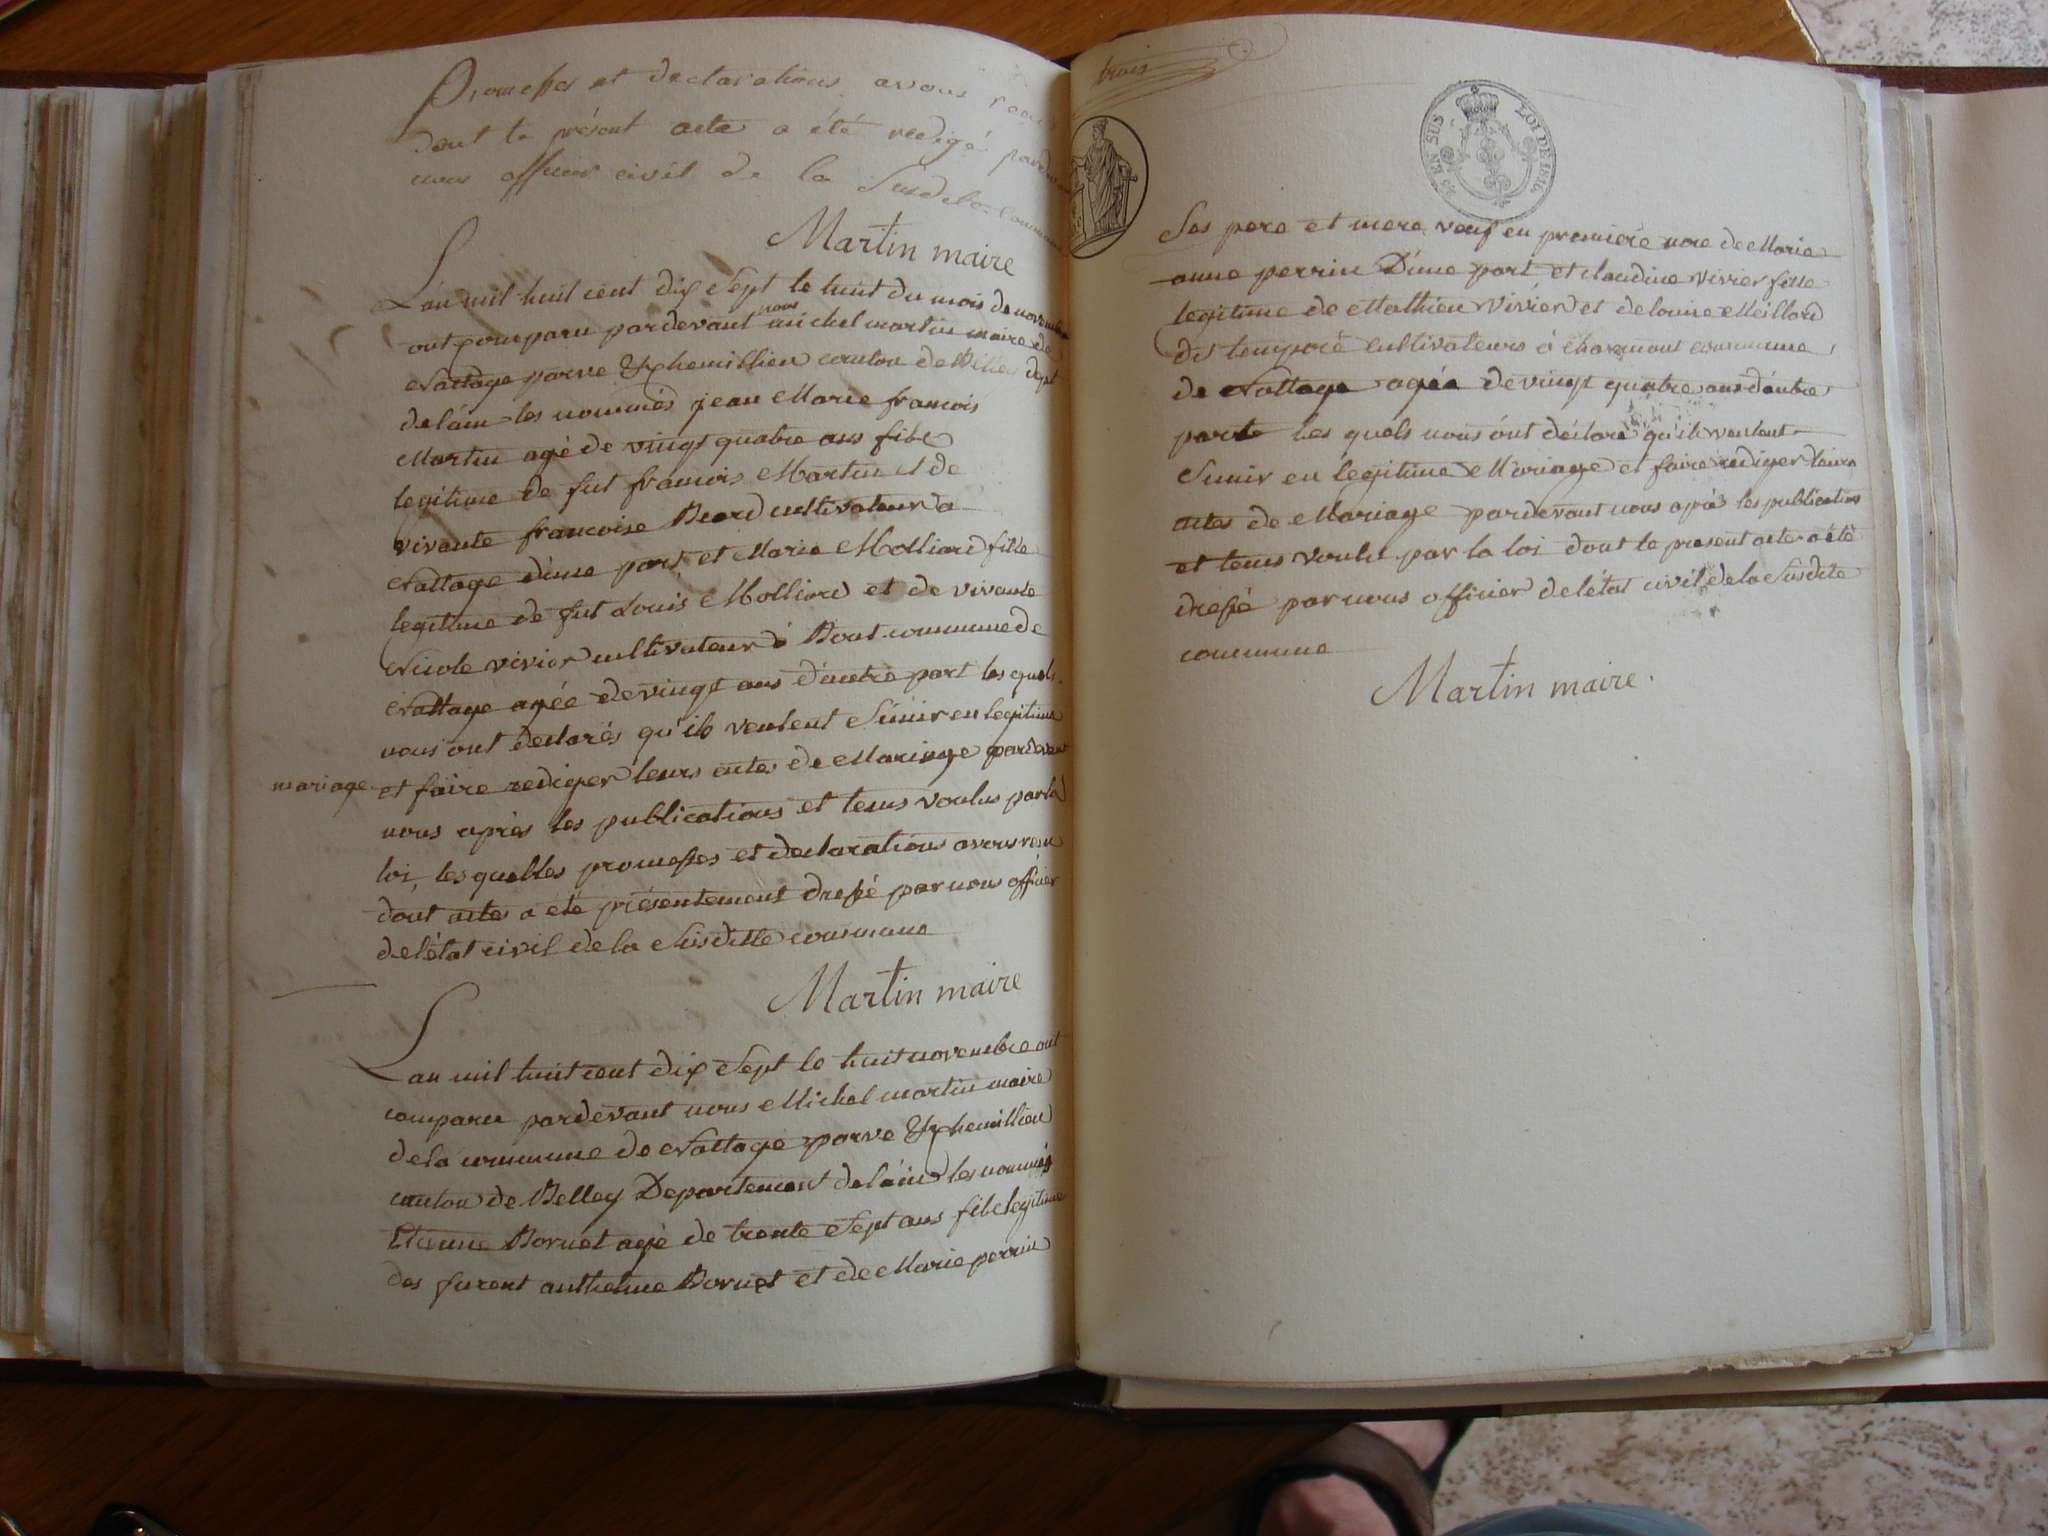 Promesses et declarations avons reçu
dont le présent acte a été redigé pardevant
nous officier civil de la Susdele Commune
Martin maire
L'an mil huit cent dix Sept le huit du mois de novembre
ont comparu pardevant nous michel martin maire de
Nattage parve & chemillieu canton de Belley dept
de l'ain les nommés jean Marie francois
Martin agé de vingt quatre ans fils
legitime de fut francois Martin et de
vivante francoise Beard cultivateur a
Nattage d'une part et Marie Molliard fille
legitime de fut Louis Molliard et de vivante
Nicole vivier cultivateur à Bont commune de
Nattage agée de vingt ans d'autre part les quels
nous ont declarés qu'ils veulent S'unir en legitime
mariage et faire rediger leurs actes de Mariage pardevant
nous après les publications et tems voulus par la
loi, les quelles promesses et declarations avons reçu
dont actes a eté présentement dressé par nous officier
de l'état civil de la Susditte commune
Martin maire
L'an mil huit cent dix Sept le huit novembre ont
comparu pardevant nous Michel martin maire
de la commune de Nattage parve & chemillieu
canton de Belley Departement de l'ain les nommés
Etienne Bornet agé de trente Sept ans fils legitime
des furent anthelme Bornet et de Marie perrin
trois
LOI DE 1816.
Ses pere et mere veuf en premiere noce de Marie
anne perrin D'une part et claudine Vivier fille
legitime de Mathieu Vivier et de louise Meillard
cultivateurs à Charmont commune
de Nattage agée de vingt quatre ans d'autre
part les quels nous ónt déclaré qu'ils veulent
S'unir en legitime Mariage et faire rediger leurs
actes de Mariage pardevant nous après les publications
et tems voulu par la loi dont le present acte a été
dressé par nous officier de l'état civil de la Susdite
commune
Martin maire.